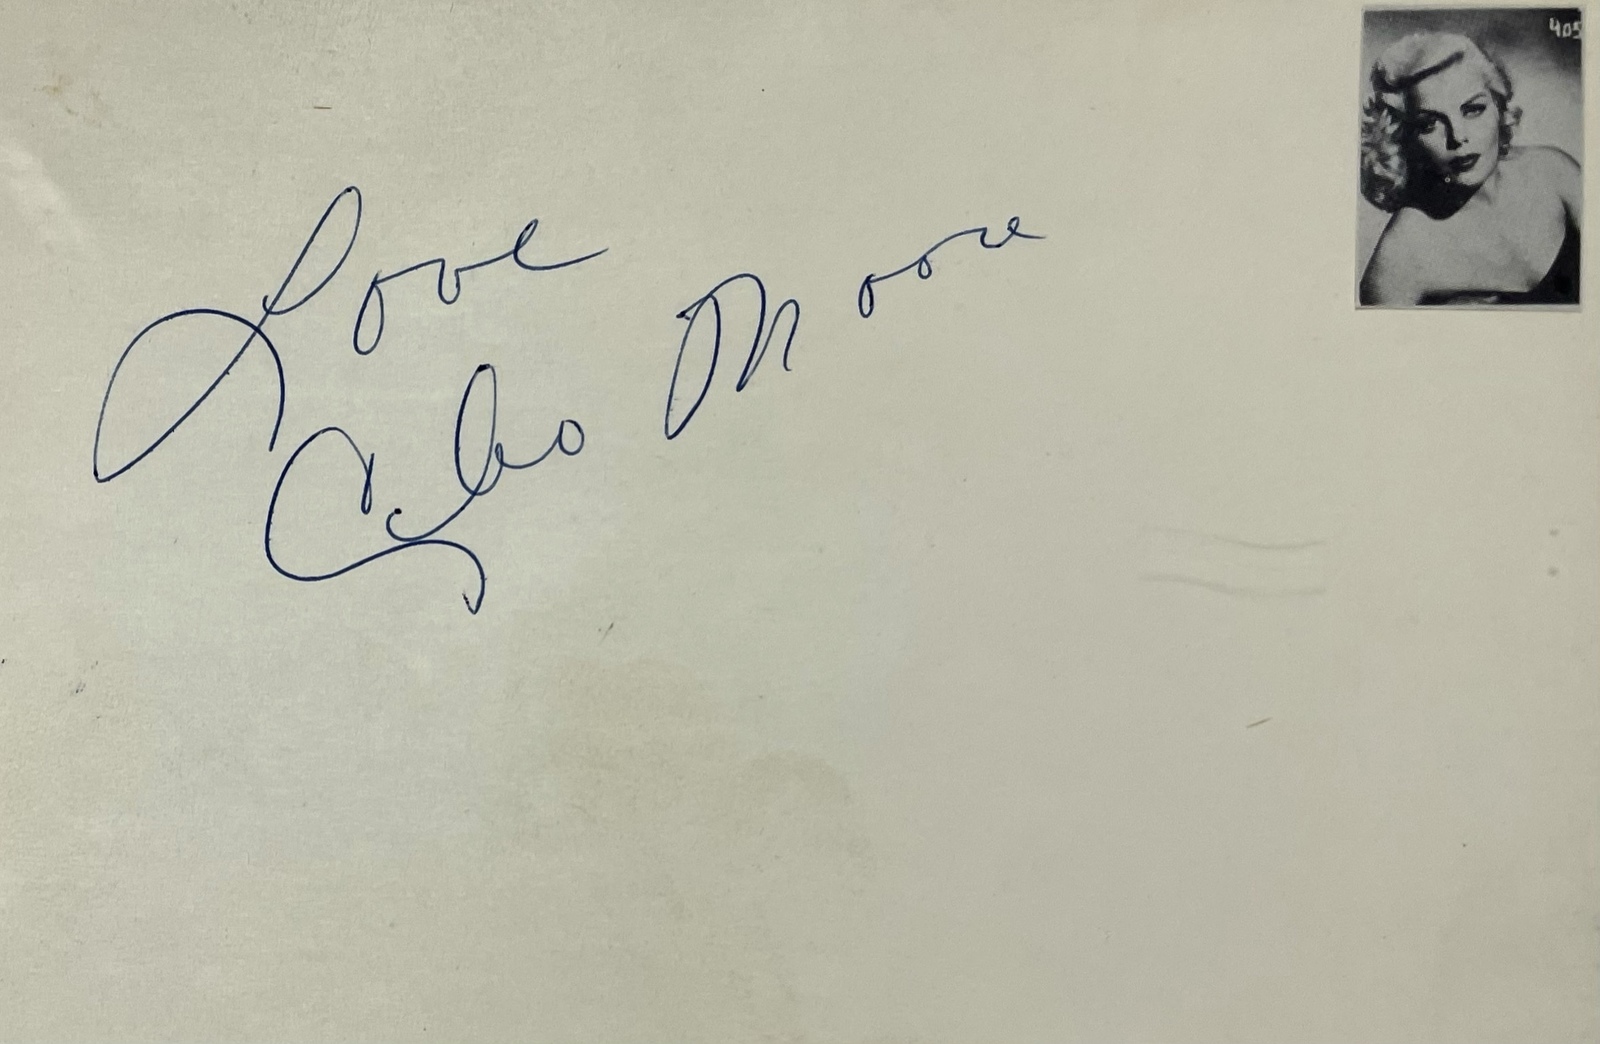 Love
Cleo Moore
405